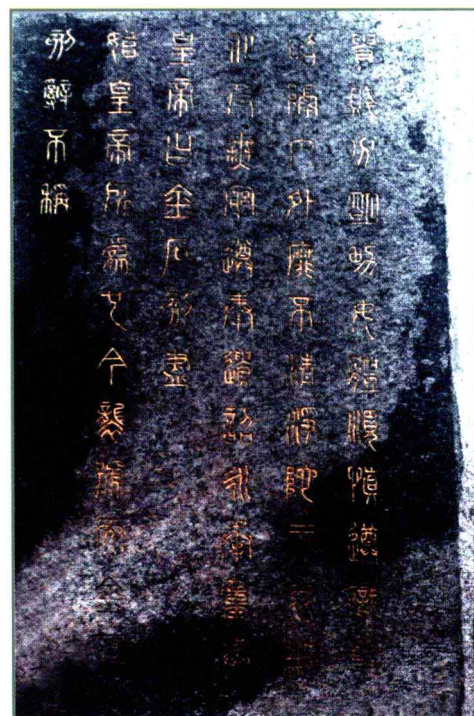 貴賤分明男女體順慎遵職事
昭隔內外靡不清淨施于昆嗣
化及無窮遵奉遺詔永承重戒
皇帝曰金石刻盡
始皇帝所為也今襲號而金石
刻辭不稱